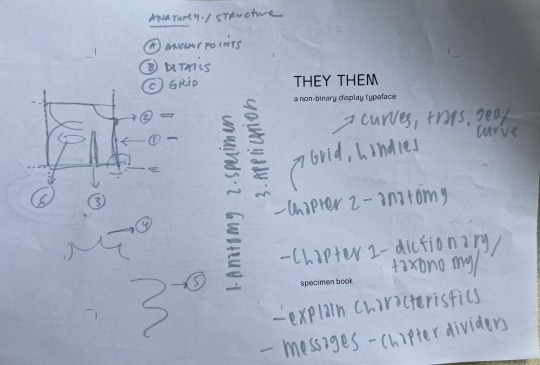 ANATOMY / STRUCTURE
A ANCHOR POINTS
B DETAILS
C GRID
2
1
6
3
4
5
1. Anatomy 2. Specimen
3. Application
THEY THEM
a non-binary display typeface
curves, traps, geo/
curve
Grid, handles
- Chapter 2 - anatomy
- Chapter 1 - dictionary/
taxonomy/
specimen book
- explain characteristics
- messages - chapter dividers